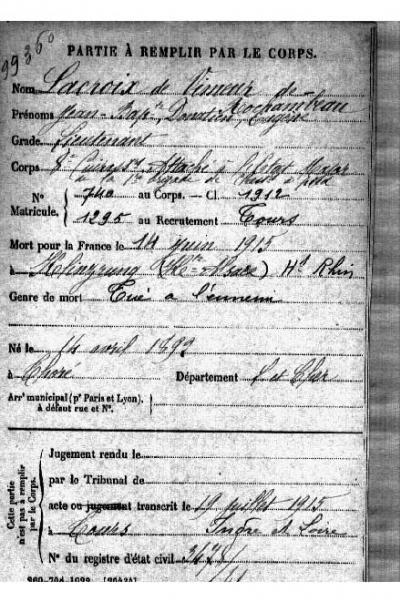 9936°
PARTIE À REMPLIR PAR LE CORPS.
Nom Lacroix de Vimeur de
Rochambeau
Prénoms Jean-Bap^te Donatien Eugène
Grade Lieutenant
Corps 8^e Cuirass^rs Attaché à l'Etat Major
de la 1^re Brigade de Chass^rs à pied
N° 740 au Corps. — Cl. 1912
Matricule. 1295 au Recrutement Tours
Mort pour la France le 14 juin 1915
à (H^te-Alsace) H^t Rhin
Genre de mort Tué à l'ennemi
Né le 14 avril 1892
à Thoré Département L et Cher
Arr^t municipal (p^r Paris et Lyon),
à défaut rue et N°.
Cette partie
n'est pas à remplir
par le Corps.
Jugement rendu le
par le Tribunal de
acte ou jugement transcrit le 19 juillet 1915
à Tours Indre et Loire
N° du registre d'état civil